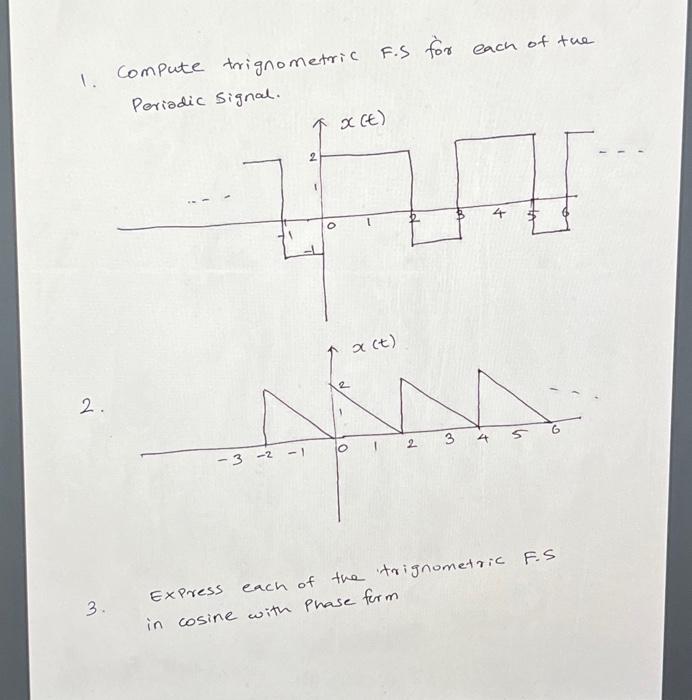 1. Compute trignometric F.S for each of tue
Periodic Signal.
x(t)
2
1
- - - -
- - -
-1 0 1 2 3 4 5 6
-1
x(t)
2.
2
1
- - -
-3 -2 -1 0 1 2 3 4 5 6
3. Express each of the trignometric F.S
in cosine with Phase form